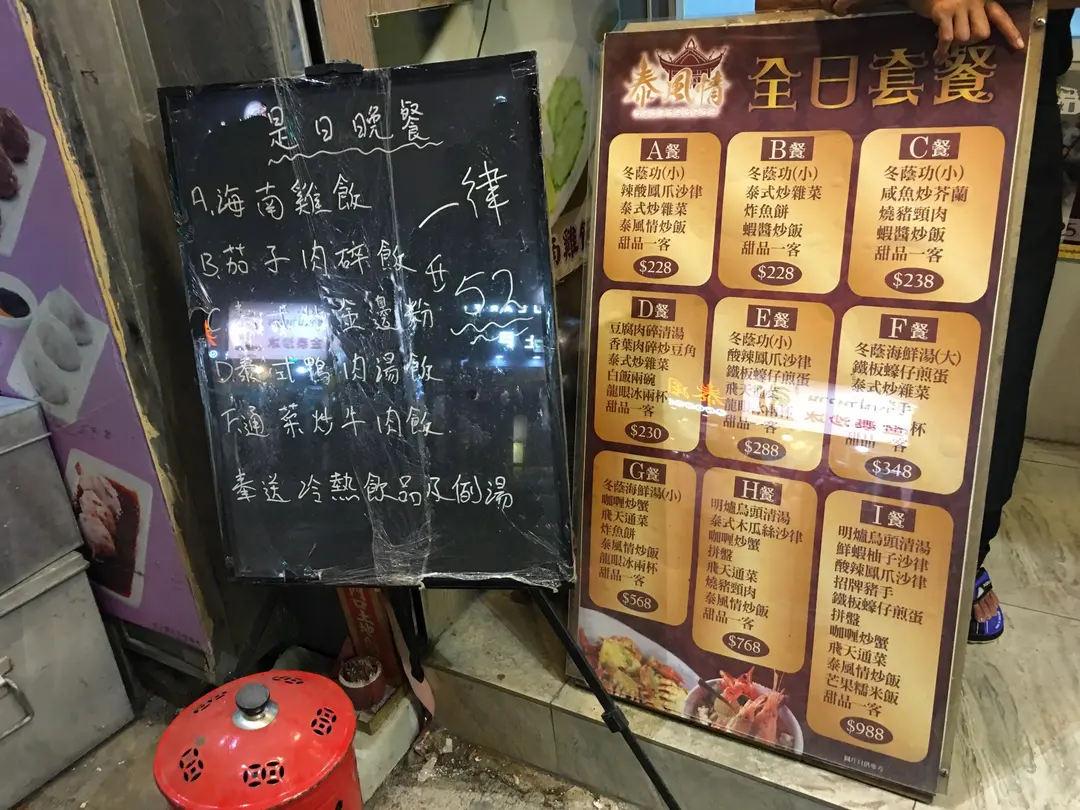 是日晚餐
A.海南雞飯
B.茄子肉碎飯
C.
炒金邊粉
D.泰式鴨肉湯飯
F.通菜炒牛肉飯.
奉送冷熱飲品及例湯
一律
$52
泰風情
全日套餐
A餐
冬蔭功(小)
辣酸鳳爪沙律
泰式炒雜菜
泰風情炒飯
甜品一客
$228
B餐
冬蔭功(小)
泰式炒雜菜
炸魚餅
蝦醬炒飯
甜品一客
$228
C餐
冬蔭功(小)
咸魚炒芥蘭
燒豬頸肉
蝦醬炒飯
甜品一客
$238
D餐
豆腐肉碎清湯
香葉肉碎炒豆角
泰式炒雜菜
白飯兩碗
龍眼冰兩杯
甜品一客
$230
E餐
冬蔭功(小)
酸辣鳳爪沙律
鐵板蠔仔煎蛋
飛天
龍眼
甜品一客
$288
F餐
冬蔭海鮮湯(大)
鐵板蠔仔煎蛋
泰式炒雜菜
杯
甜品一客
$348
G餐
冬蔭海鮮湯(小)
咖喱炒蟹
飛天通菜
炸魚餅
泰風情炒飯
龍眼冰兩杯
甜品一客
$568
H餐
明爐烏頭清湯
泰式木瓜絲沙律
咖喱炒蟹
拼盤
飛天通菜
燒豬頸肉
泰風情炒飯
甜品一客
$768
I餐
明爐烏頭清湯
鮮蝦柚子沙律
酸辣鳳爪沙律
招牌豬手
鐵板蠔仔煎蛋
拼盤
咖喱炒蟹
飛天通菜
泰風情炒飯
芒果糯米飯
甜品一客
$988
圖片只供參考